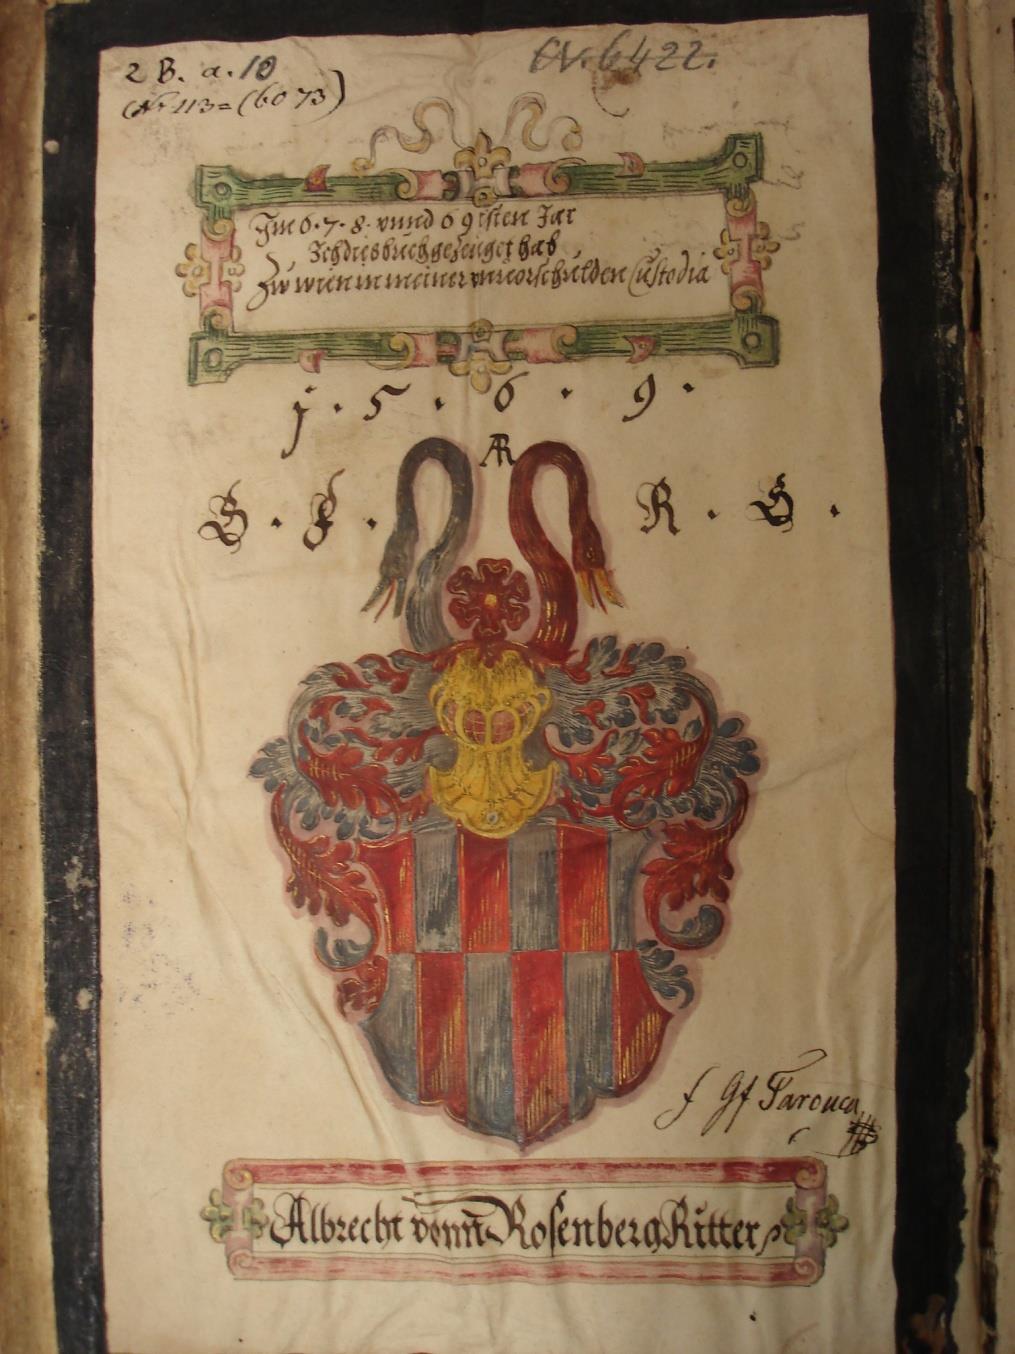 2 B. a. 10
CV. 6422.
(Nr 113 = (6073)
Im 6·7·8· vnnd 69isten Jar
Ich dis buch gezeuget hab
Zu wien in meiner vnuorschulden Custodia
1·5·6·9·
AR
S·J·
R·S·
f Gf Tarouca
Albrecht vonn Rosenberg Ritter